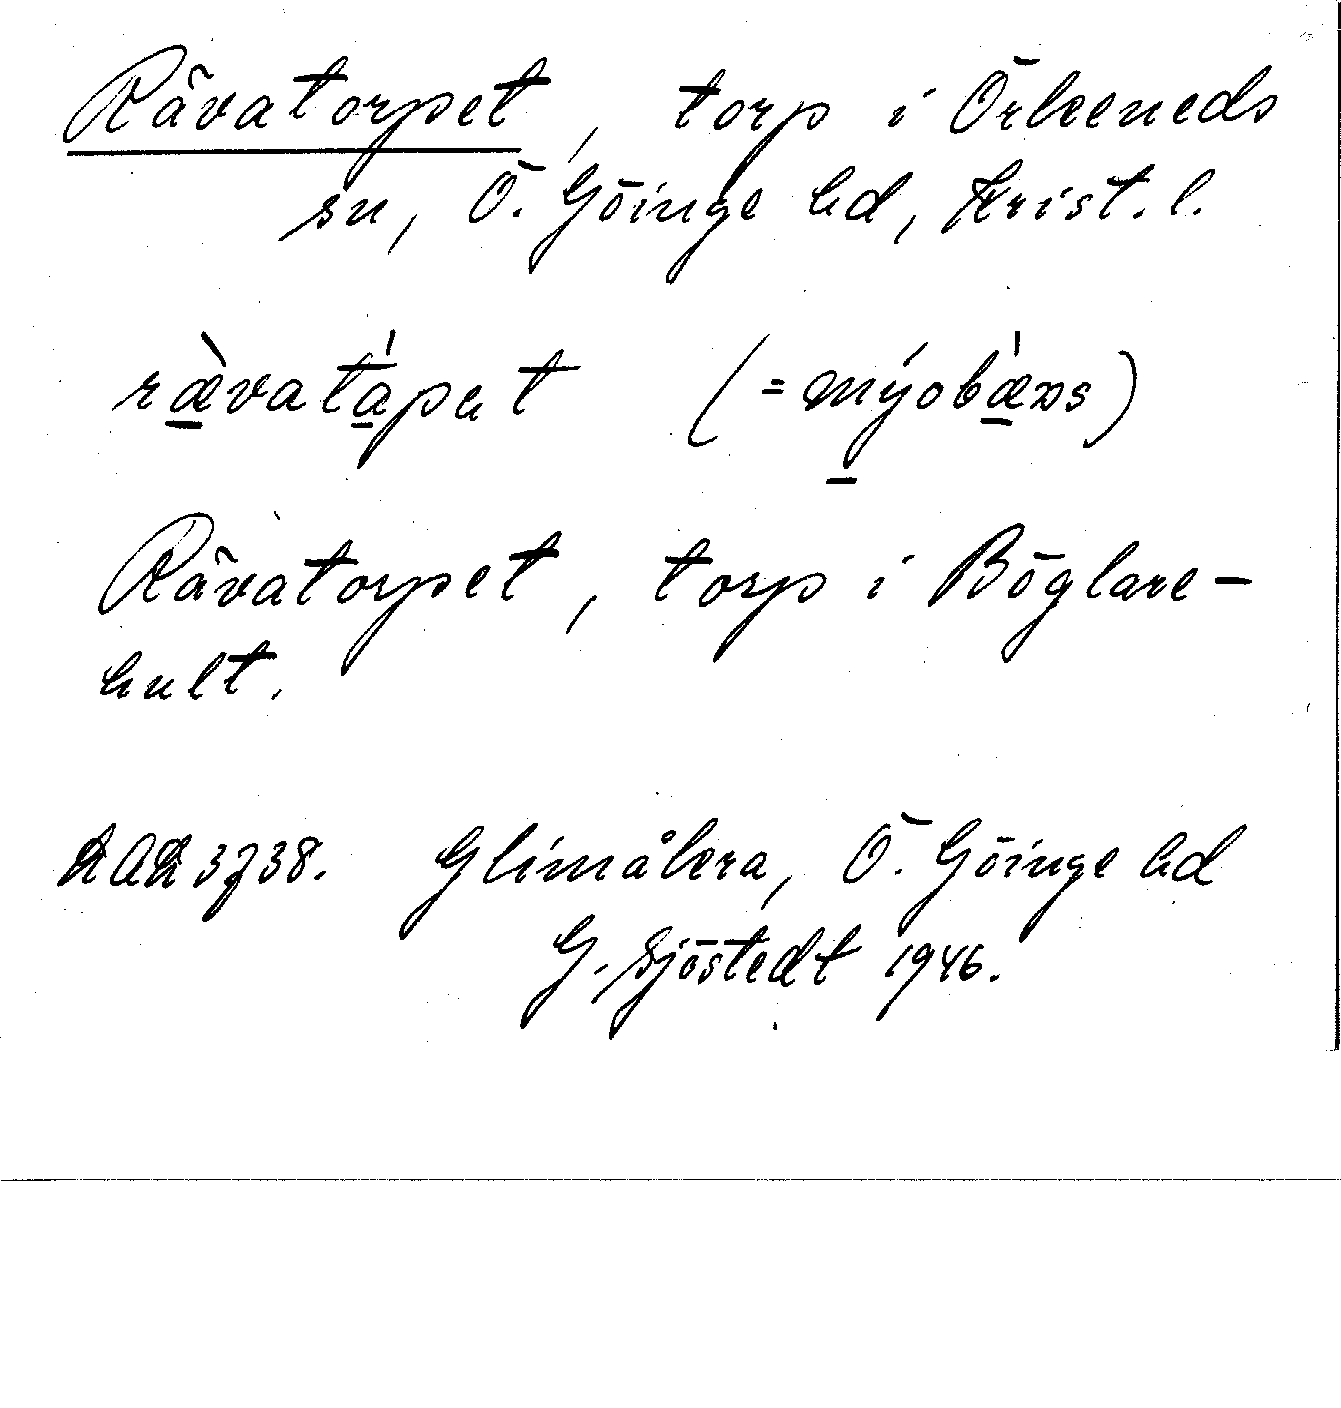 Rävatorpet, torp i Örkeneds
sn, Ö. Göinge hd, Krist. l.
ræ̀vatápət (=mýobæ̀ns)
Rävatorpet, torp i Böglare-
hult.
3738. Glimåkra, Ö. Göinge hd
G. Sjöstedt 1946.